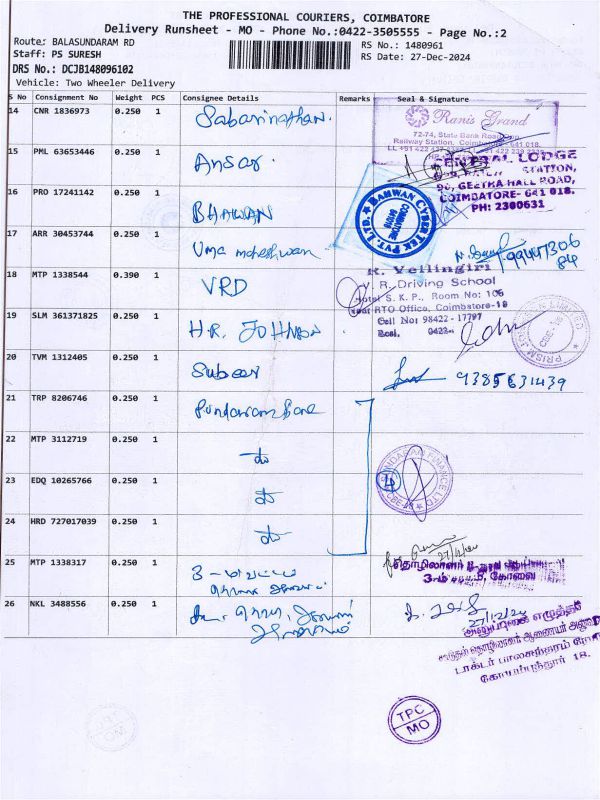 THE PROFESSIONAL COURIERS, COIMBATORE
Delivery Runsheet - MO - Phone No.:0422-3505555 - Page No.:2
Route: BALASUNDARAM RD
RS No.: 1480961
Staff: PS SURESH
RS Date: 27-Dec-2024
DRS No.: DCJB148096102
Vehicle: Two Wheeler Delivery
S No Consignment No Weight PCS Consignee Details Remarks Seal & Signature
14 CNR 1836973 0.250 1 Sabarinathan.
Ranis Grand
72-74, State Bank Road,
Railway Station, Coimbatore - 641 018.
15 PML 63653446 0.250 1 Ansar.
CENTRAL LODGE
STATION,
90, GEETHA HALL ROAD,
COIMBATORE- 641 018.
PH: 2300631
16 PRO 17241142 0.250 1 BHAWAN
BAHWAN CYBERTEK PVT. LTD.
COIMBATORE
641018
17 ARR 30453744 0.250 1 Uma maheshwari
9944730684
18 MTP 1338544 0.390 1 VRD
R. Vellingiri
V. R. Driving School
Hotel S. K. P., Room No: 106
Near RTO Office, Coimbatore-18
Cell No: 98422 - 17797
0422-
19 SLM 361371825 0.250 1 H.R. JOHNSON
PRISM JOHNSON LIMITED
CBE-18
20 TVM 1312405 0.250 1 Subeer
9385631439
21 TRP 8206746 0.250 1 Sundaram Fine
22 MTP 3112719 0.250 1
23 EDQ 10265766 0.250 1
4
SUNDARAM FINANCE LTD
CBE-18
24 HRD 727017039 0.250 1
27/12/24
25 MTP 1338317 0.250 1
தொழிலாளர்
கோவை
26 NKL 3488556 0.250 1
27/12/24
அலுவலக எழுத்தர்
டாக்டர் பாலசுந்தரம் ரோடு
கோயம்புத்தூர் 18.
TPC
MO